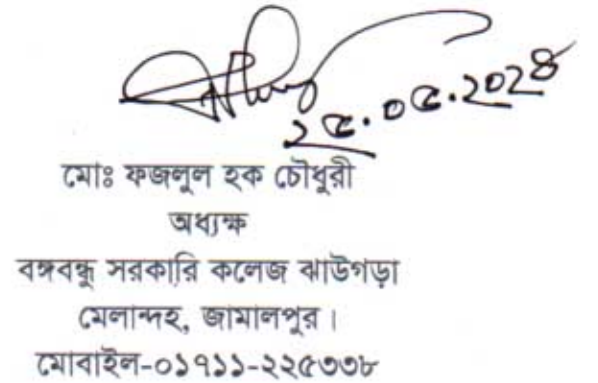 ২৫.০৫.২০২৪
মোঃ ফজলুল হক চৌধুরী
অধ্যক্ষ
বঙ্গবন্ধু সরকারি কলেজ ঝাউগড়া
মেলান্দহ, জামালপুর।
মোবাইল-০১৭১১-২২৫৩৩৮